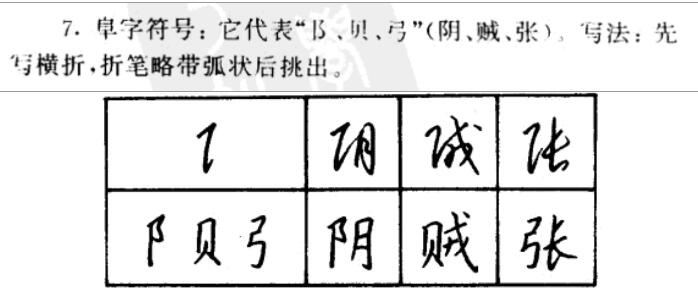 7. 阜字符号：它代表“阝、贝、弓”(阴、贼、张)。写法：先
写横折，折笔略带弧状后挑出。
阴 贼 张
阝 贝 弓 阴 贼 张